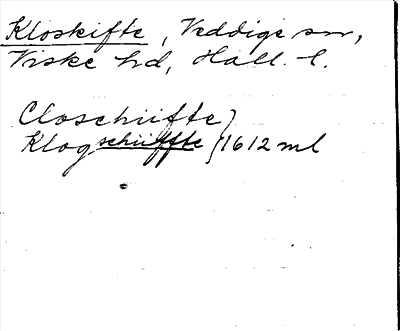 Kloskifte, Veddige sn,
Viske hd, Hall. l.
Closchiifte }
Klogschiiffte } 1612 ml